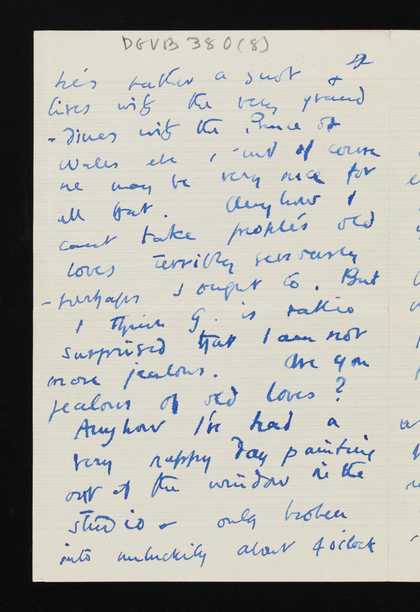 DGVB 380(8)
he's rather a snob &
lives with the very grand
- dines with the Prince of
Wales etc, and of course
he may be very nice for
all that. Anyhow I
can't take people's old
loves terribly seriously
- perhaps I ought to. But
I think G. is rather
surprised that I am not
more jealous. Are you
jealous of old loves?
Anyhow I've had a
very happy day painting
out of the window in the
studio & only broken
into unluckily about 4 o'clock